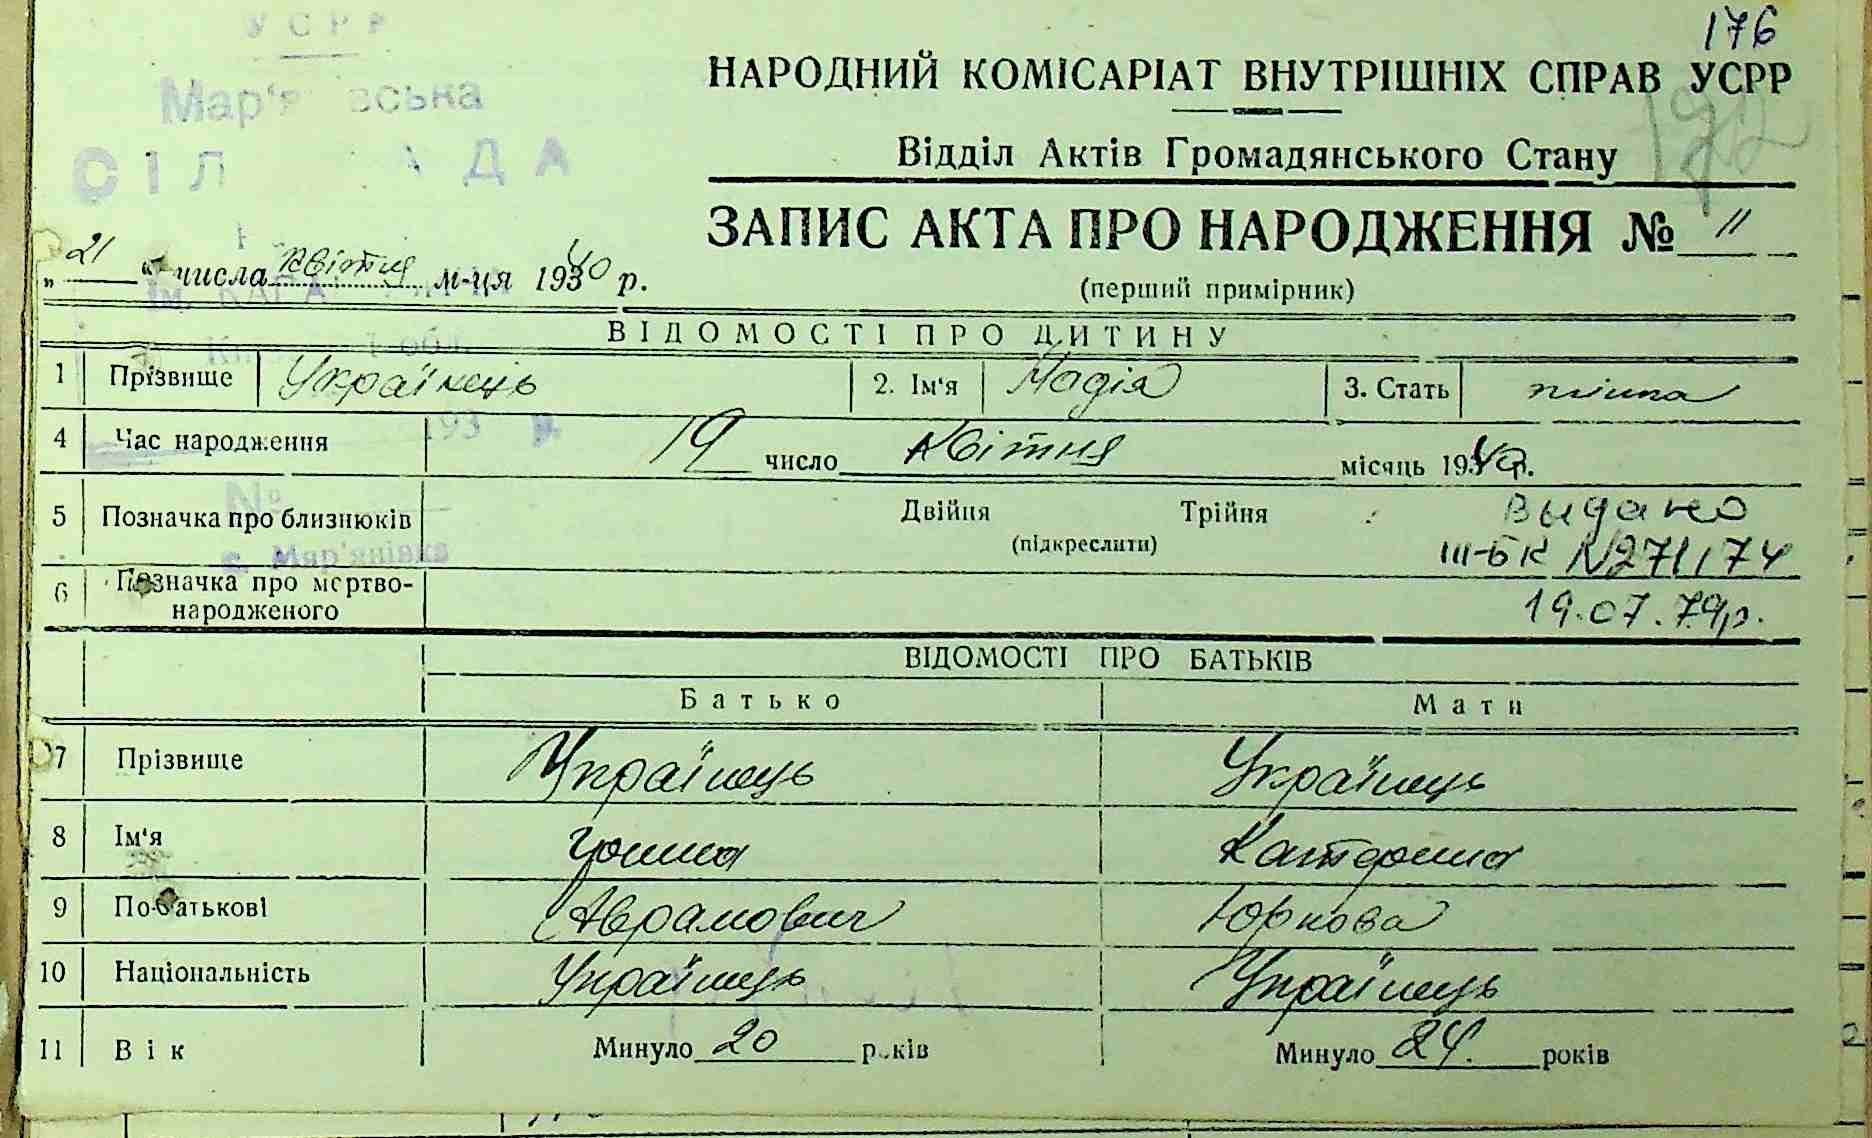 176
УСРР
Мар'я вська
СІЛ АДА
НАРОДНИЙ КОМІСАРІАТ ВНУТРІШНІХ СПРАВ УСРР
Відділ Актів Громадянського Стану
ЗАПИС АКТА ПРО НАРОДЖЕННЯ № 11
(перший примірник)
„ 21 “ числа квітня м-ця 1940 р.
ВІДОМОСТІ ПРО ДИТИНУ
1 Прізвище Українець 2. Ім'я Надія 3. Стать
193 р.
4 Час народження 19 число квітня місяць 1940 р.
№
5 Позначка про близнюків Двійня Трійня Выдано
(підкреслити) III-БК N271174
с. Мар'янівка
6 Позначка про мертво-
народженого 19.07.79р.
ВІДОМОСТІ ПРО БАТЬКІВ
Батько Мати
7 Прізвище Українець Українець
8 Ім'я Катерина
9 По-батькові Аврамович Юркова
10 Національність Українець Українець
11 Вік Минуло 20 років Минуло 24. років